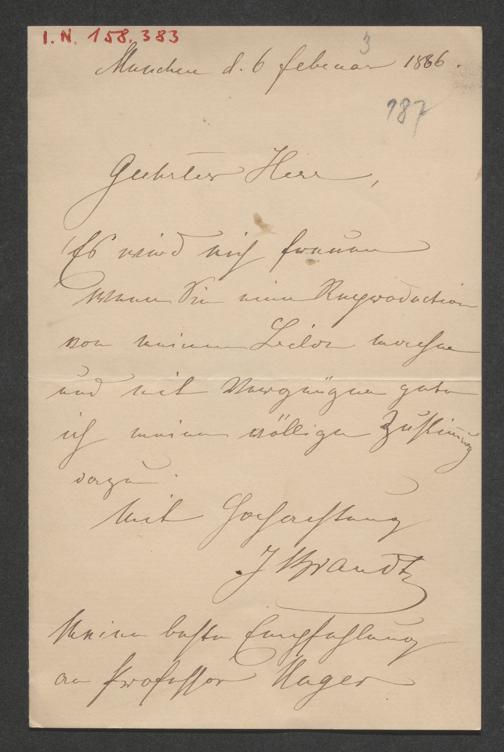 I.N. 158.383
3
München d. 6 februar 1886.
187
Geehrter Herr,
Es wird mich freuen
wenn Sie eine Reproduction
von meinem Bilde machen
und mit Vergnügen gebe
ich meine völlige Zustimmung
dazu.
Mit Hochachtung
J Brandt
Meine beste Empfehlung
an Professor Unger